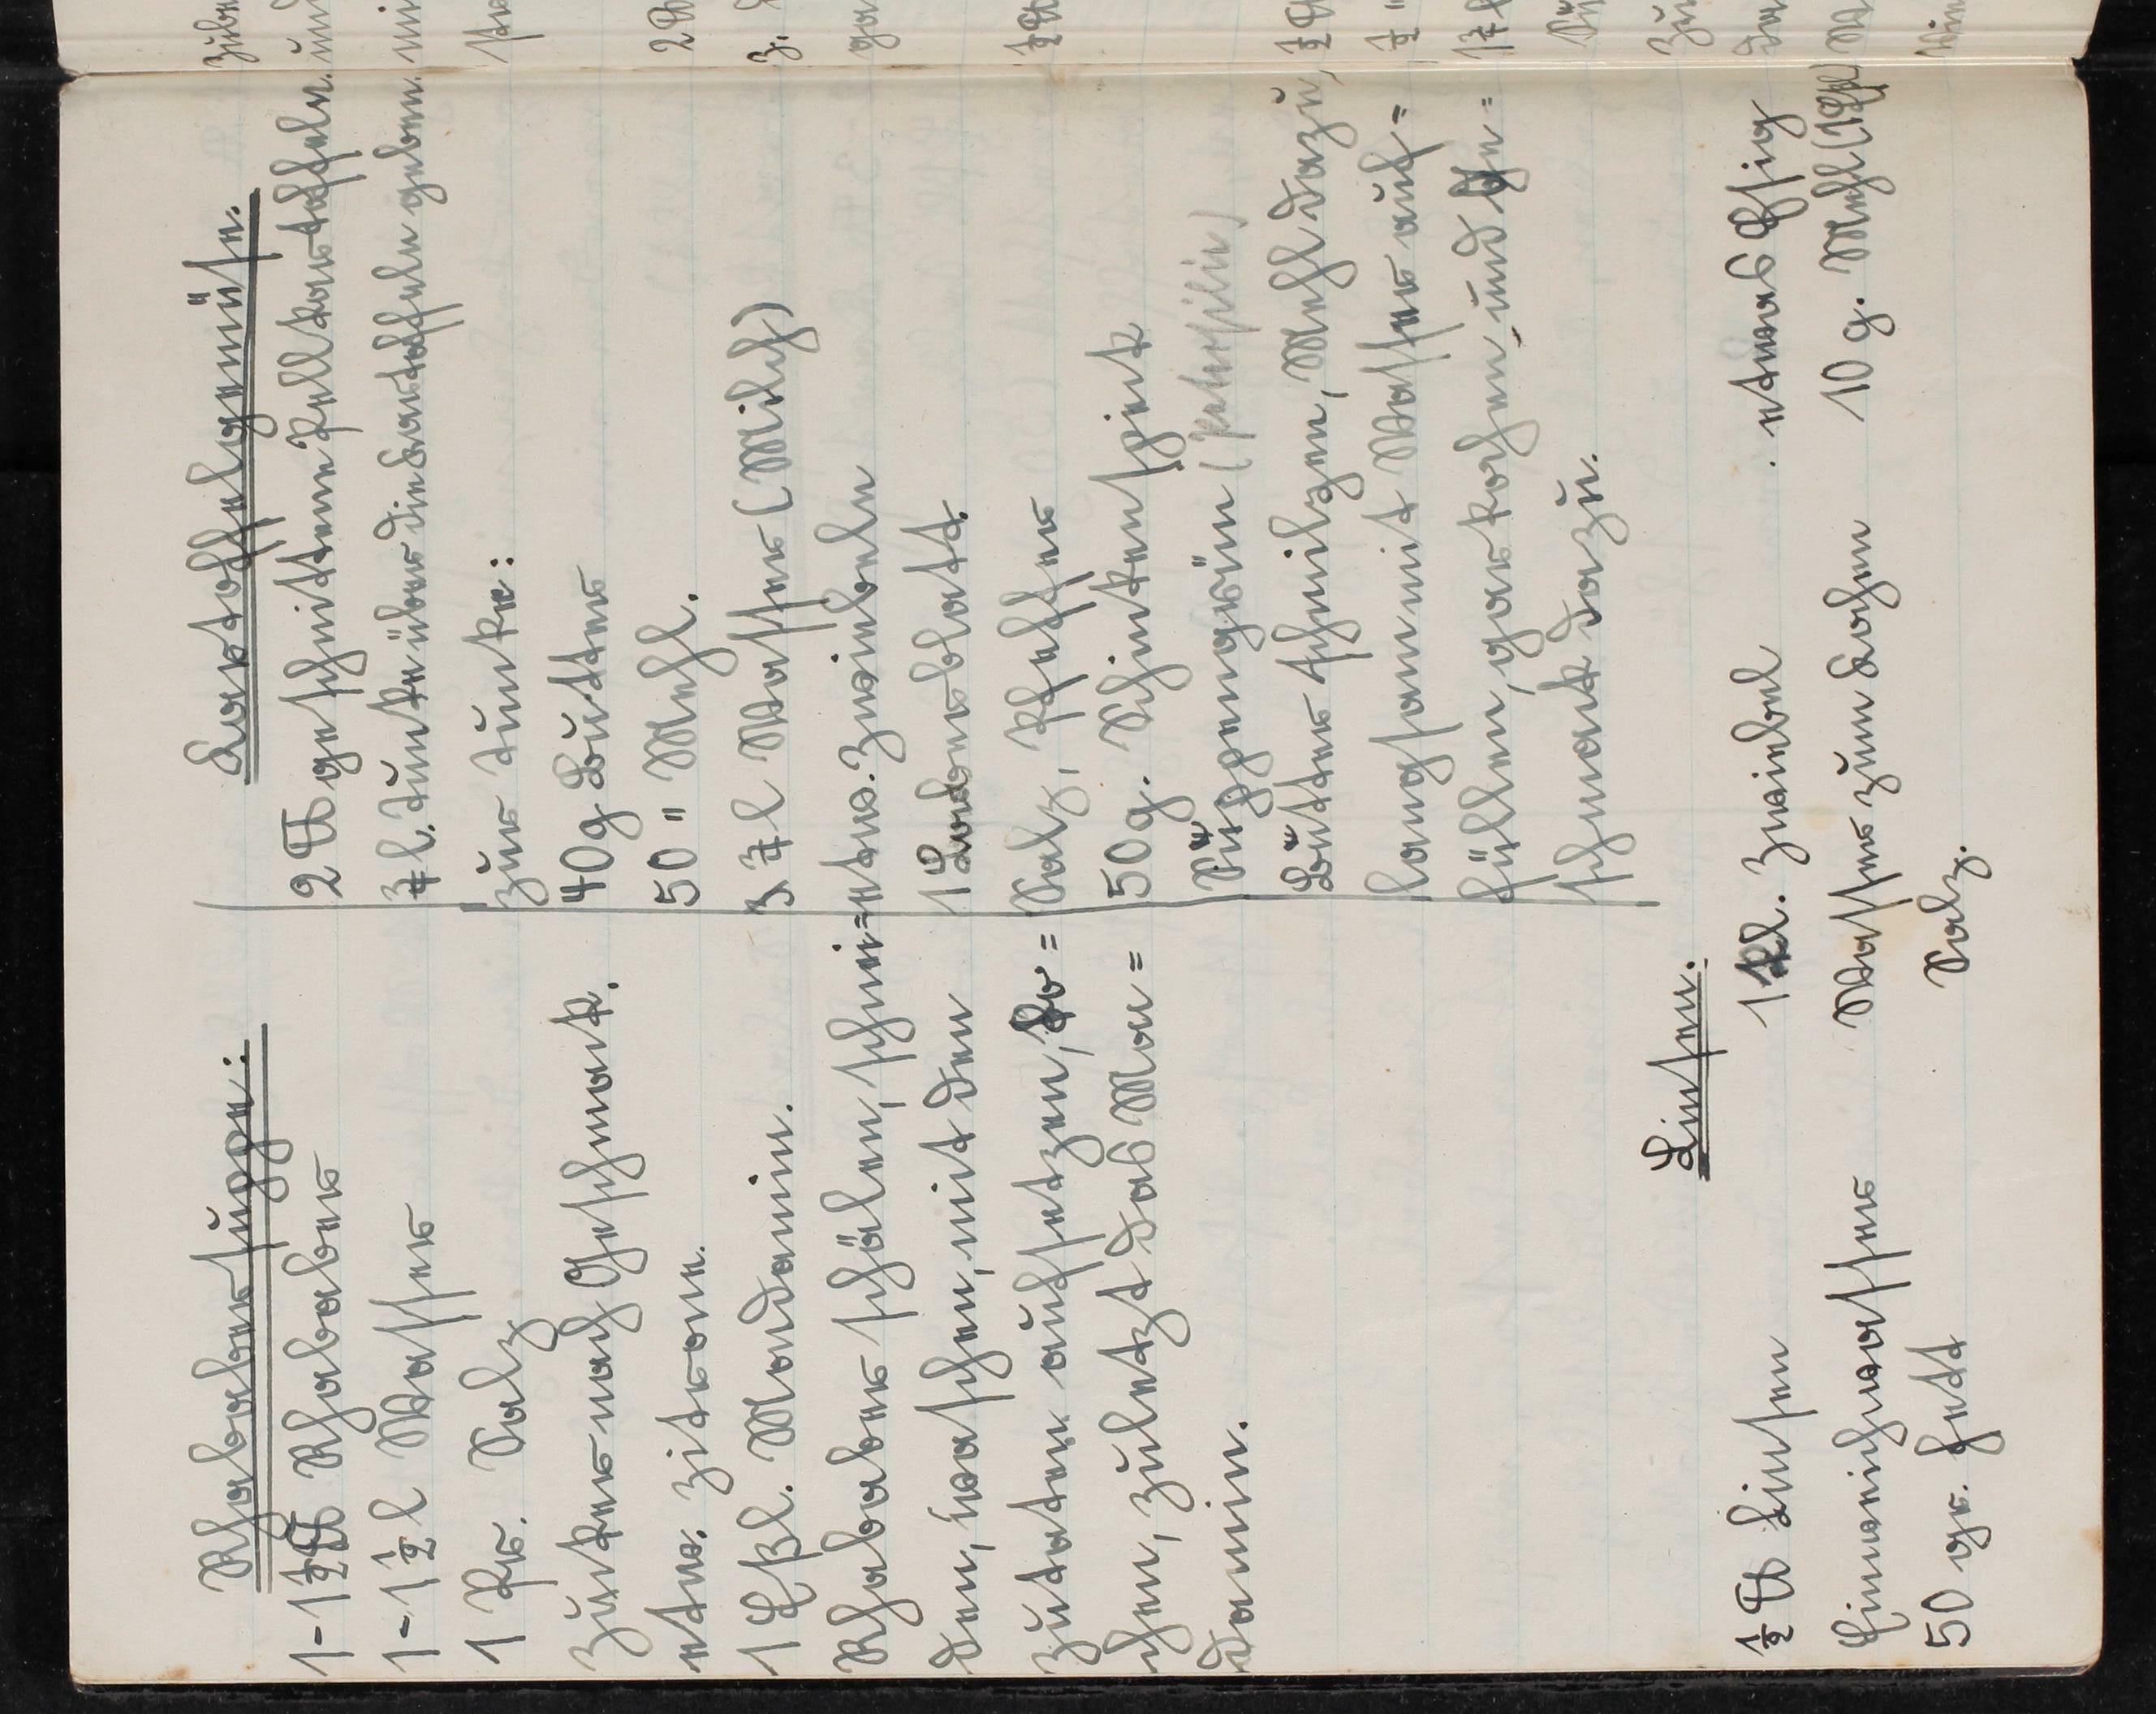 Rhabarbersuppe:
1-1½ ℔ Rhabarber
1-1½ l Wasser
1 Pr. Salz
Zucker nach Geschmack.
etw. Zitrone.
1 Eßl. Mondamin.
Rhabarber schälen, schnei=
den, waschen, mit den
Zutaten aufsetzen, ko=
chen, zuletzt das Mon=
damin.
Kartoffelgemüse.
2 ℔ geschnittene Pellkartoffeln.
¾ l. Tunke über die Kartoffeln geben.
Zur Tunke:
40 g Butter
50 " Mehl.
¾ l Wasser (Milch)
etw. Zwiebeln
1 Lorberblatt.
Salz, Pfeffer
50 g. Schinkenspeck
Suppengrün (Petersilie)
Butter schmelzen, Mehl dazu,
langsam mit Wasser auf=
füllen, gar kochen und Ge=
schmack dazu.
Linsen.
½ ℔ Linsen 1 kl. Zwiebel etwas Essig
Einweichwasser Wasser zum Kochen 10 g. Mehl (1 Eßl)
50 gr. Fett Salz.